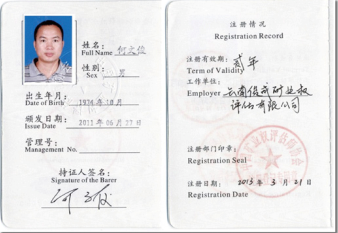 姓名： 何文俊
Full Name
性别： 男
Sex
出生年月：
Date of Birth 1974年10月
颁发日期：
Issue Date 2011年06月27日
管理号：
Management No.
持证人签名：
Signature of the Barer
注册情况
Registration Record
注册有效期： 贰年
Term of Validity
工作单位：
Employer 云南俊成矿业权
评估有限公司
注册部门印章：
Registration Seal
注册日期： 2013年3月21日
Registration Date